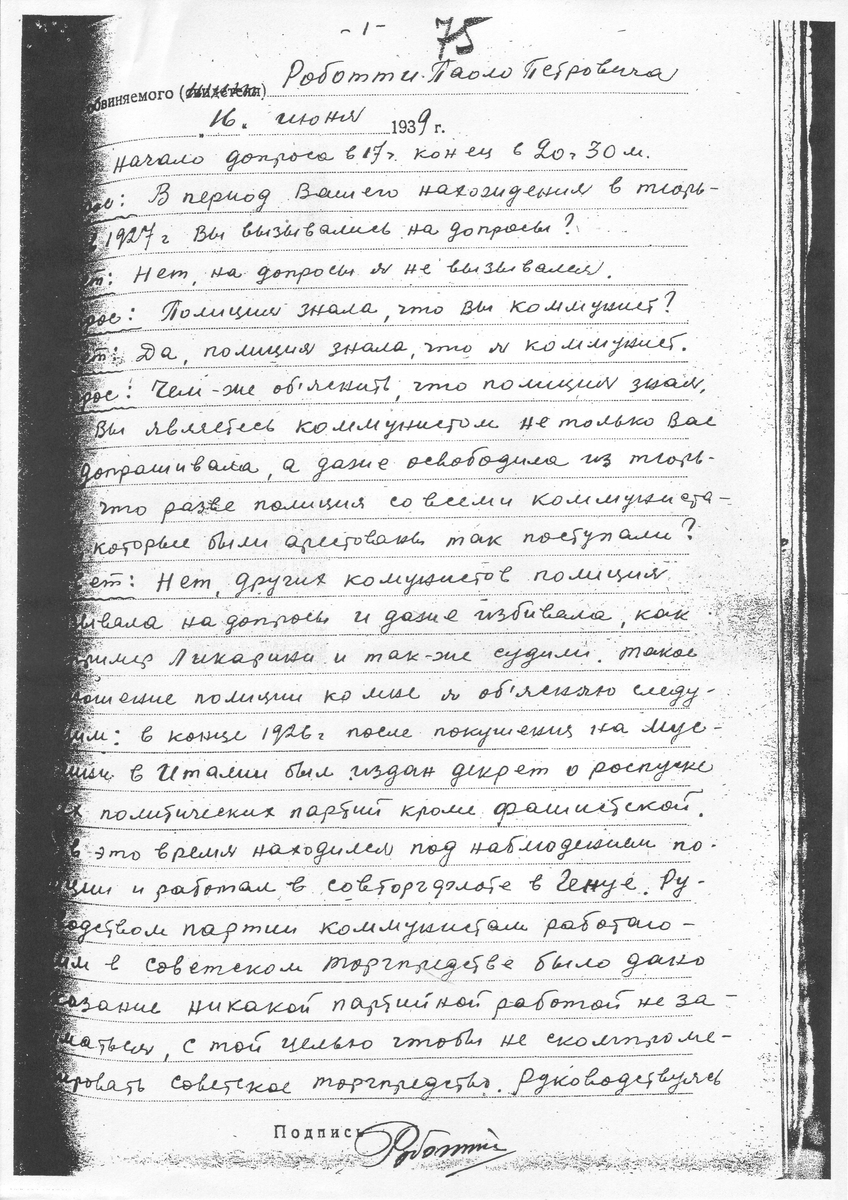 - 1 -
75
обвиняемого (свидетеля) Роботти Паоло Петровича
„16“ июня 1939 г.
начало допроса в 17 г. конец в 20 г 30 м.
рос: В период Вашего нахождения в тюрь-
1927 г Вы вызывались на допросы?
ет: Нет, на допросы я не вызывался.
рос: Полиция знала, что Вы коммунист?
ет: Да, полиция знала, что я коммунист.
рос: Чем-же об'яснить, что полиция зная,
Вы являетесь коммунистом не только Вас
допрашивала, а даже освободила из тюрь-
что разве полиция со всеми коммуниста-
которые были арестованы так поступали?
ет: Нет, других комунистов полиция
зывала на допросы и даже избивала, как
пример Ликарини и так-же судили. такое
ношение полиции ко мне я об'ясняю следу-
щим: в конце 1926 г после покушения на Мус-
лини в Италии был издан декрет о роспуске
х политических партий кроме фашистской.
в это время находился под наблюдением по-
ции и работал в совторгфлоте в Генуе. Ру-
водством партии коммунистам работаю-
им в советском торгпредстве было дано
казание никакой партийной работой не за-
маться, с той целью чтобы не скомпроме-
ировать советское торгпредство. Руководствуясь
Подпись Роботти